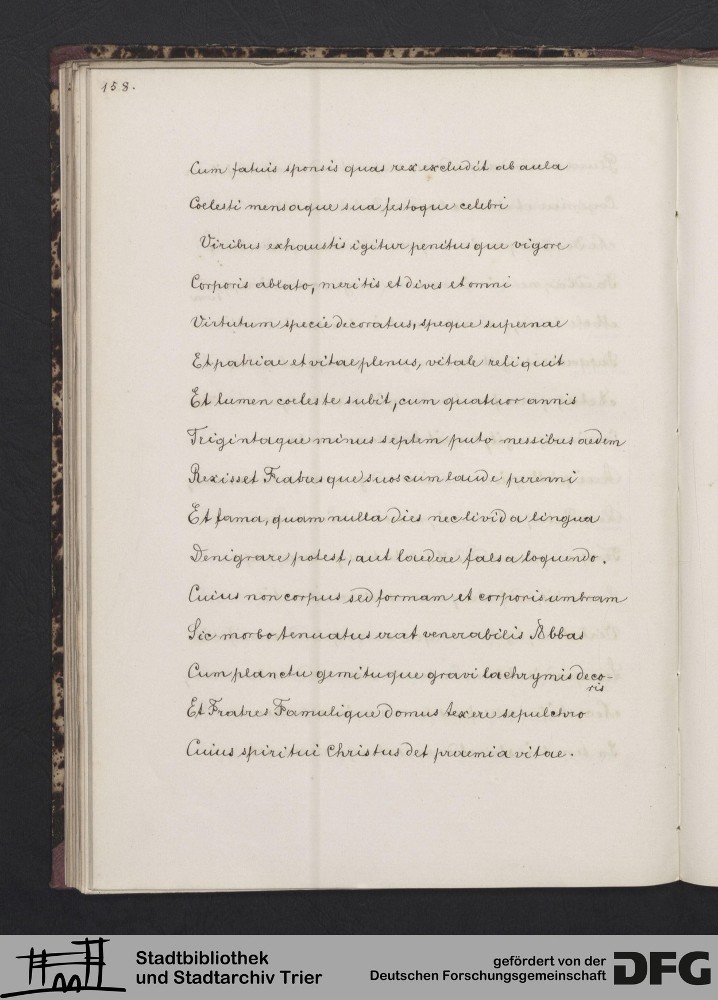 158.
Cum fatuis sponsis quas rex excludit ab aula
Coelesti mensaque sua festoque celebri
Viribus exhaustis igitur penitusque vigore
Corporis ablato, meritis et dives et omni
Virtutum specie decoratus, speque supernae
Et patriae et vitae plenus, vitale reliquit
Et lumen coeleste subit, cum quatuor annis
Trigintaque minus septem puto messibus aedem
Rexisset Fratresque suos cum laude perenni
Et fama, quam nulla dies nec livida lingua
Denigrare potest, aut laedere falsa loquendo.
Cuius non corpus sed formam et corporis umbram
Sic morbo tenuatus erat venerabilis Abbas
Cum planctu gemituque gravi lachrymis deco-
ris
Et Fratres Famulique domus texere sepulchro
Cuius spiritui Christus det praemia vitae.
Stadtbibliothek
und Stadtarchiv Trier
gefördert von der
Deutschen Forschungsgemeinschaft
DFG